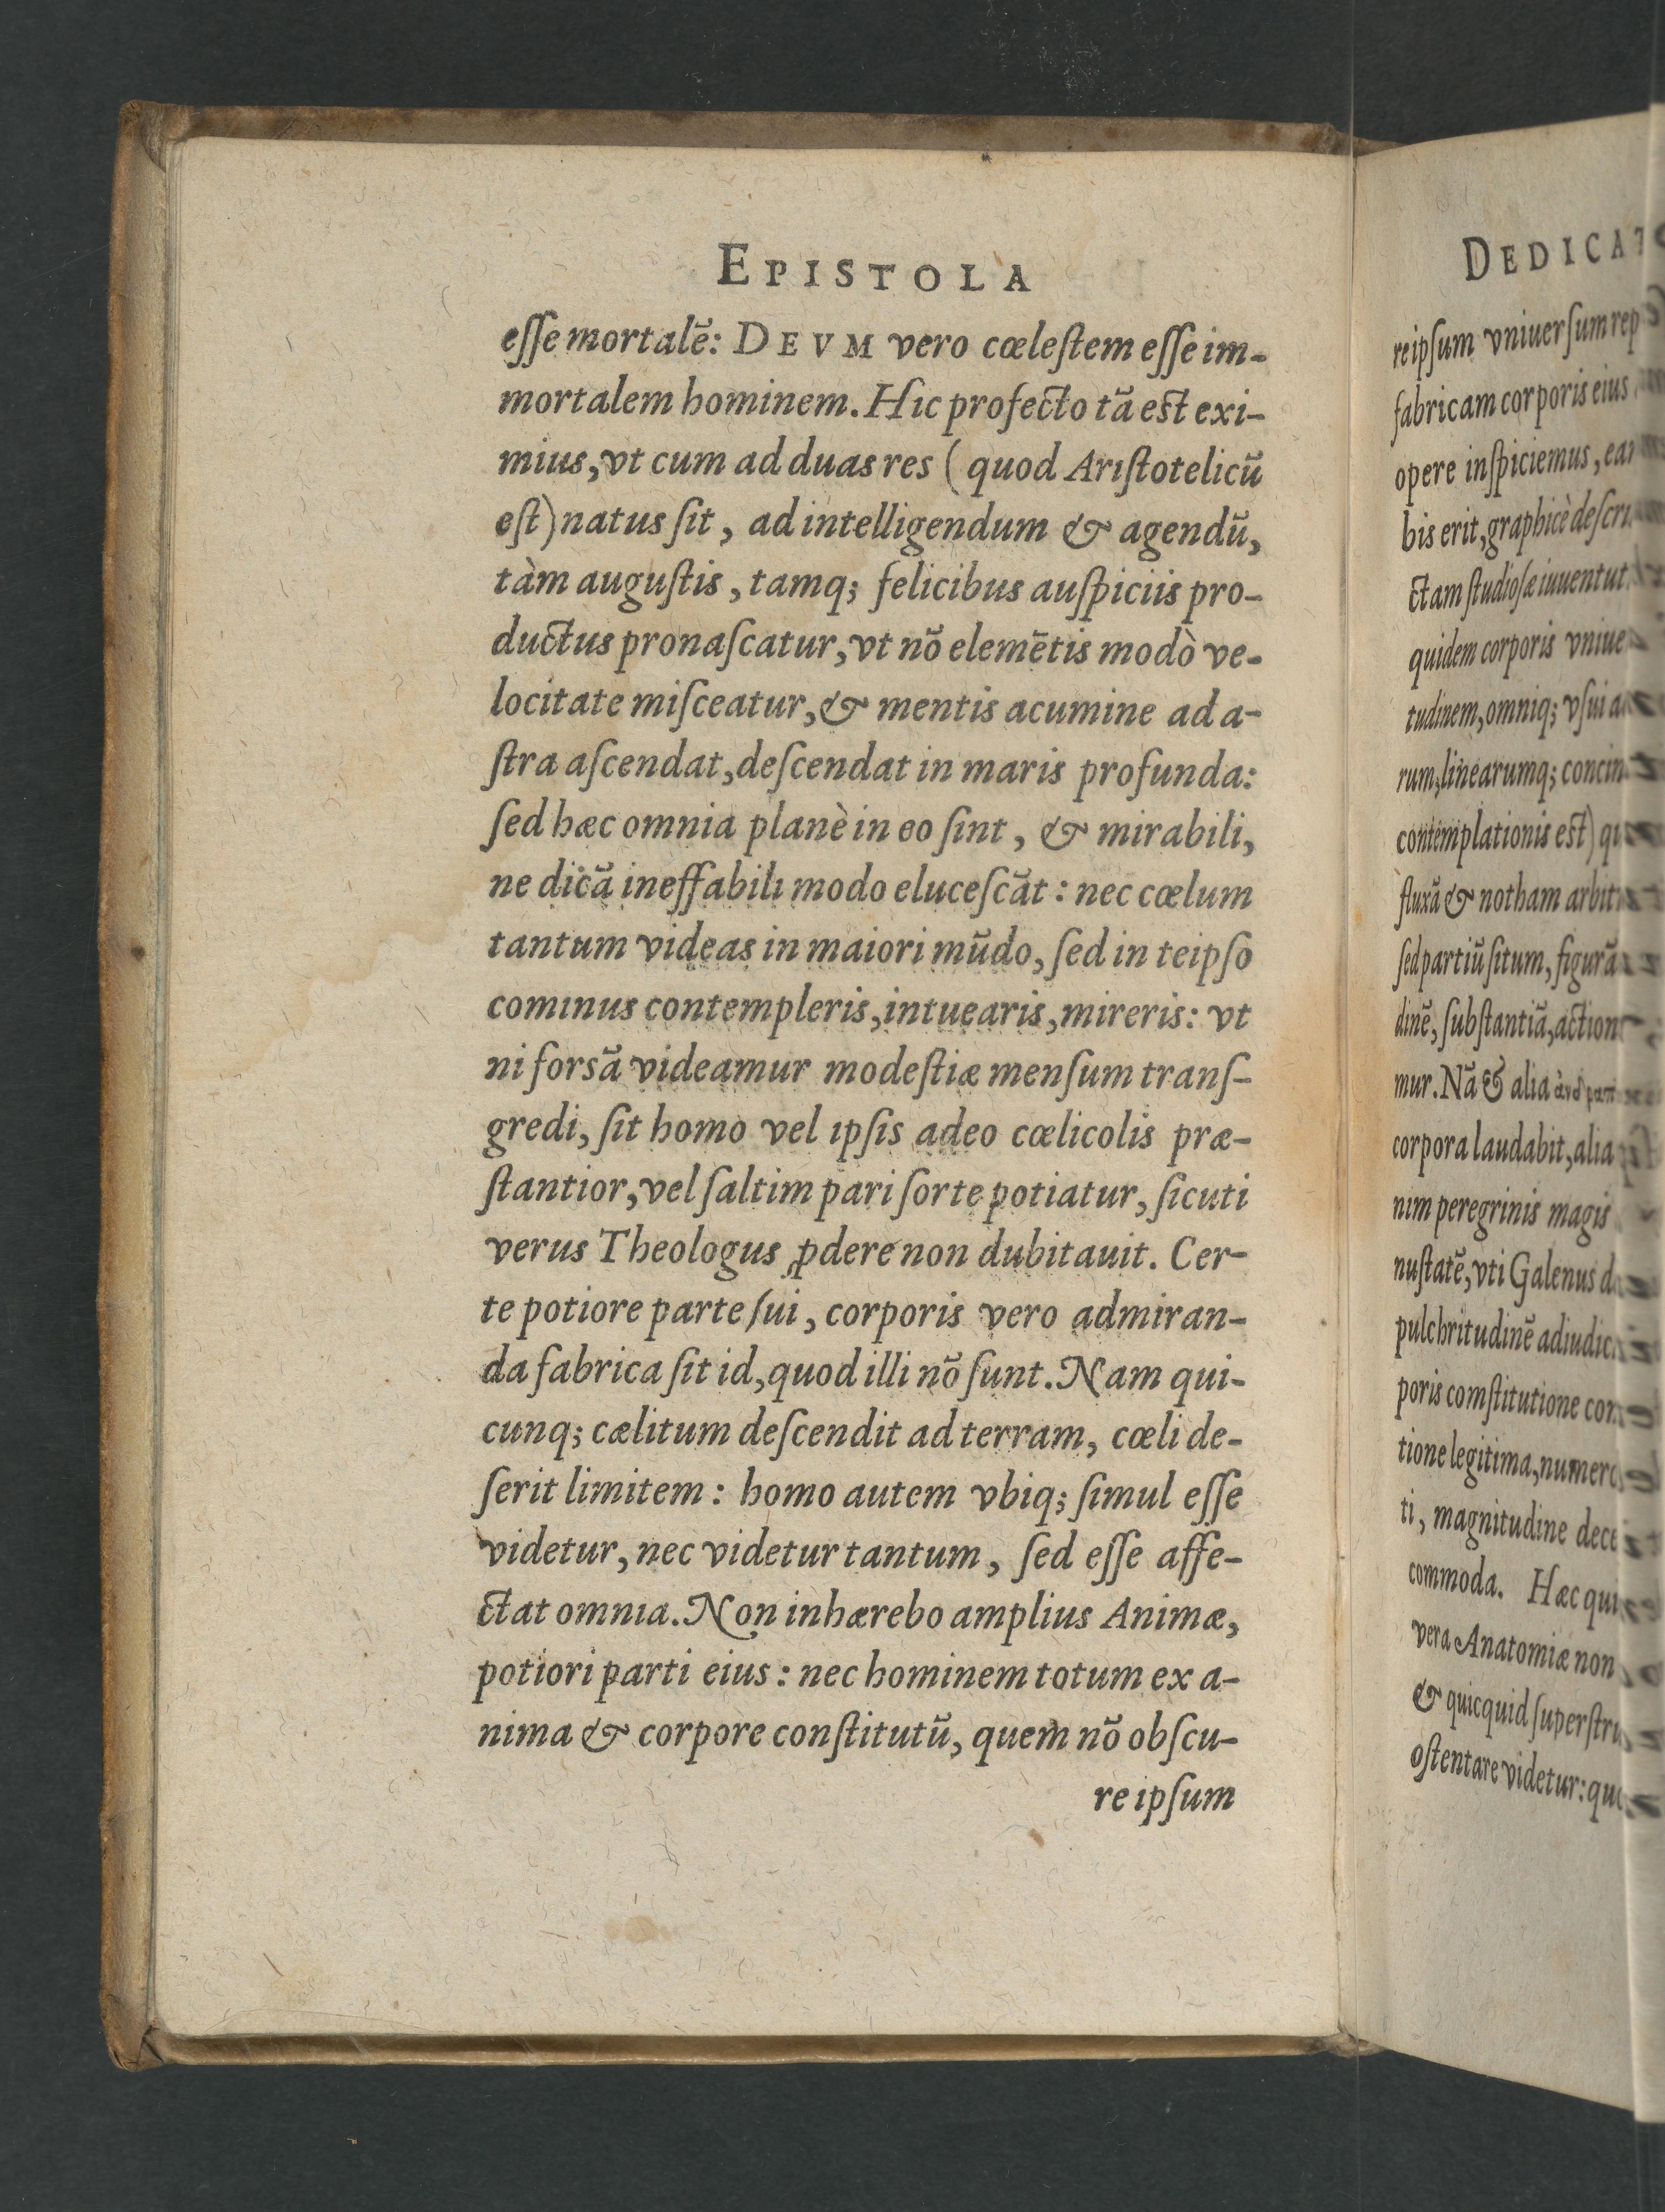 EPISTOLA
eſſe mortalẽ: DEVM vero cœleſtem eſſe im-
mortalem hominem. Hic profecto tã est exi-
mius, vt cum ad duas res (quod Ariſtotelicũ
eſt) natus ſit, ad intelligendum & agendũ,
tàm auguſtis, tamq; felicibus auſpiciis pro-
ductus pronaſcatur, vt nõ elemẽtis modò ve-
locitate miſceatur, & mentis acumine ad a-
ſtra aſcendat, deſcendat in maris profunda:
ſed hæc omnia planè in eo ſint, & mirabili,
ne dicã ineffabili modo eluceſcãt: nec cœlum
tantum videas in maiori mũdo, ſed in teipſo
cominus contempleris, intuearis, mireris: vt
ni forsã videamur modeſtiæ menſum tranſ-
gredi, ſit homo vel ipſis adeo cœlicolis præ-
ſtantior, vel ſaltim pari ſorte potiatur, ſicuti
verus Theologus ꝓdere non dubitauit. Cer-
te potiore parte ſui, corporis vero admiran-
da fabrica ſit id, quod illi nõ ſunt. Nam qui-
cunq; cælitum deſcendit ad terram, cœli de-
ſerit limitem: homo autem vbiq; ſimul eſſe
videtur, nec videtur tantum, ſed eſſe affe-
ctat omnia. Non inhærebo amplius Animæ,
potiori parti eius: nec hominem totum ex a-
nima & corpore conſtitutũ, quem nõ obſcu-
re ipſum
DEDICAT
re ipſum vniuerſum rep
fabricam corporis eius
opere inſpiciemus, ea
bis erit, graphicè deſcri
ctam ſtudioſæ iuuentut
quidem corporis vniue
tudinem, omniq; vſui a
rum, linearumq; concin
contemplationis est) qu
fluxã & notham arbit
ſed partiũ ſitum, figurã
dinẽ, ſubſtantiã, action
mur. Nã & alia
corpora laudabit, alia
nim peregrinis magis
nuſtatẽ, vti Galenus d
pulchritudinẽ adiudic
poris comſtitutione con
tione legitima, numero
ti, magnitudine dece
commoda. Hæc qui
vera Anatomiæ non
& quicquid ſuperſtru
oſtentare videtur: quo